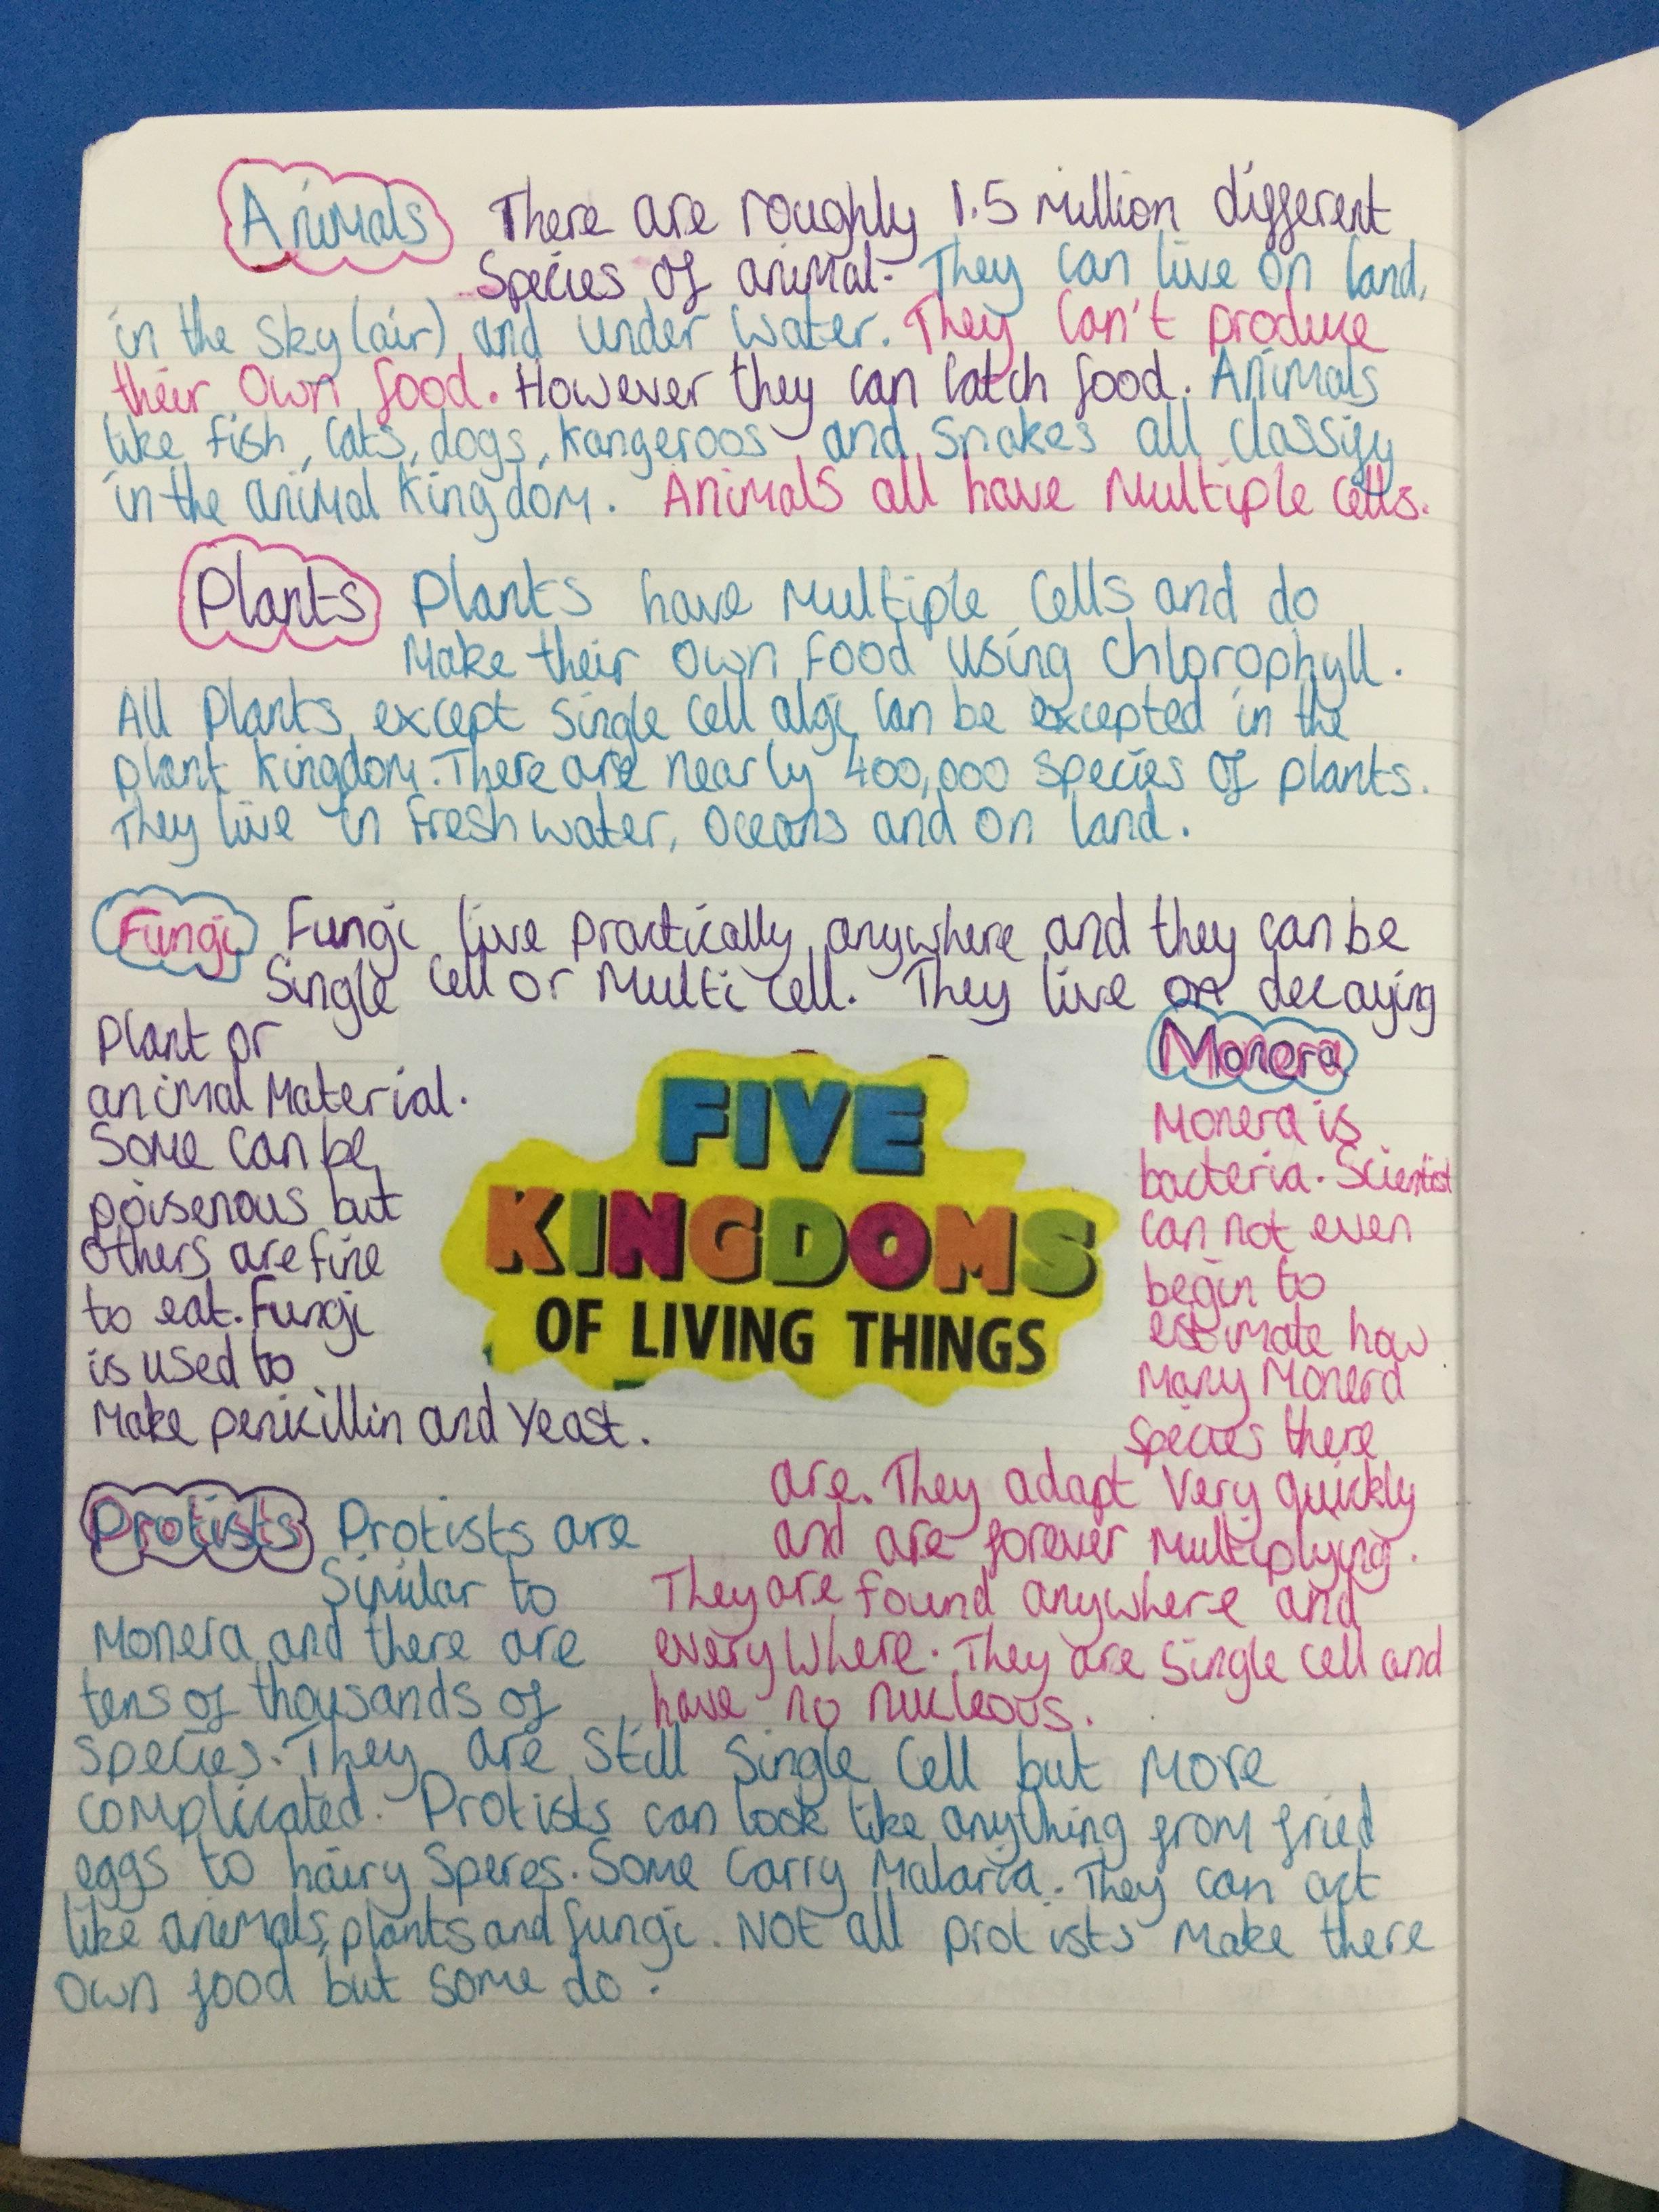 Animals There are roughly 1.5 million different
Species of animal. They can live on land,
in the sky (air) and under water. They can't produce
their own food. However they can catch food. Animals
like fish, cats, dogs, kangeroos and snakes all classify
in the animal kingdom. Animals all have multiple cells.
Plants Plants have multiple cells and do
make their own food using chlorophyll.
All plants except single cell algi can be excepted in the
plant kingdom. There are nearly 400,000 species of plants.
They live in fresh water, oceans and on land.
Fungi Fungi live practically anywhere and they can be
single cell or multi cell. They live on decaying
plant or
animal material.
Some can be
poisenous but
others are fine
to eat. Fungi
is used to
make penicillin and yeast.
FIVE
KINGDOMS
OF LIVING THINGS
Monera
Monera is
bacteria. Scientist
can not even
begin to
estimate how
many Monera
species there
are. They adapt very quickly
and are forever multiplying.
They are found anywhere and
everywhere. They are single cell and
have no nucleous.
Protists Protists are
similar to
Monera and there are
tens of thousands of
species. They are still single cell but more
complicated. Protists can look like anything from fried
eggs to hairy speres. Some carry Malaria. They can act
like animals, plants and fungi. Not all protists make there
own food but some do.